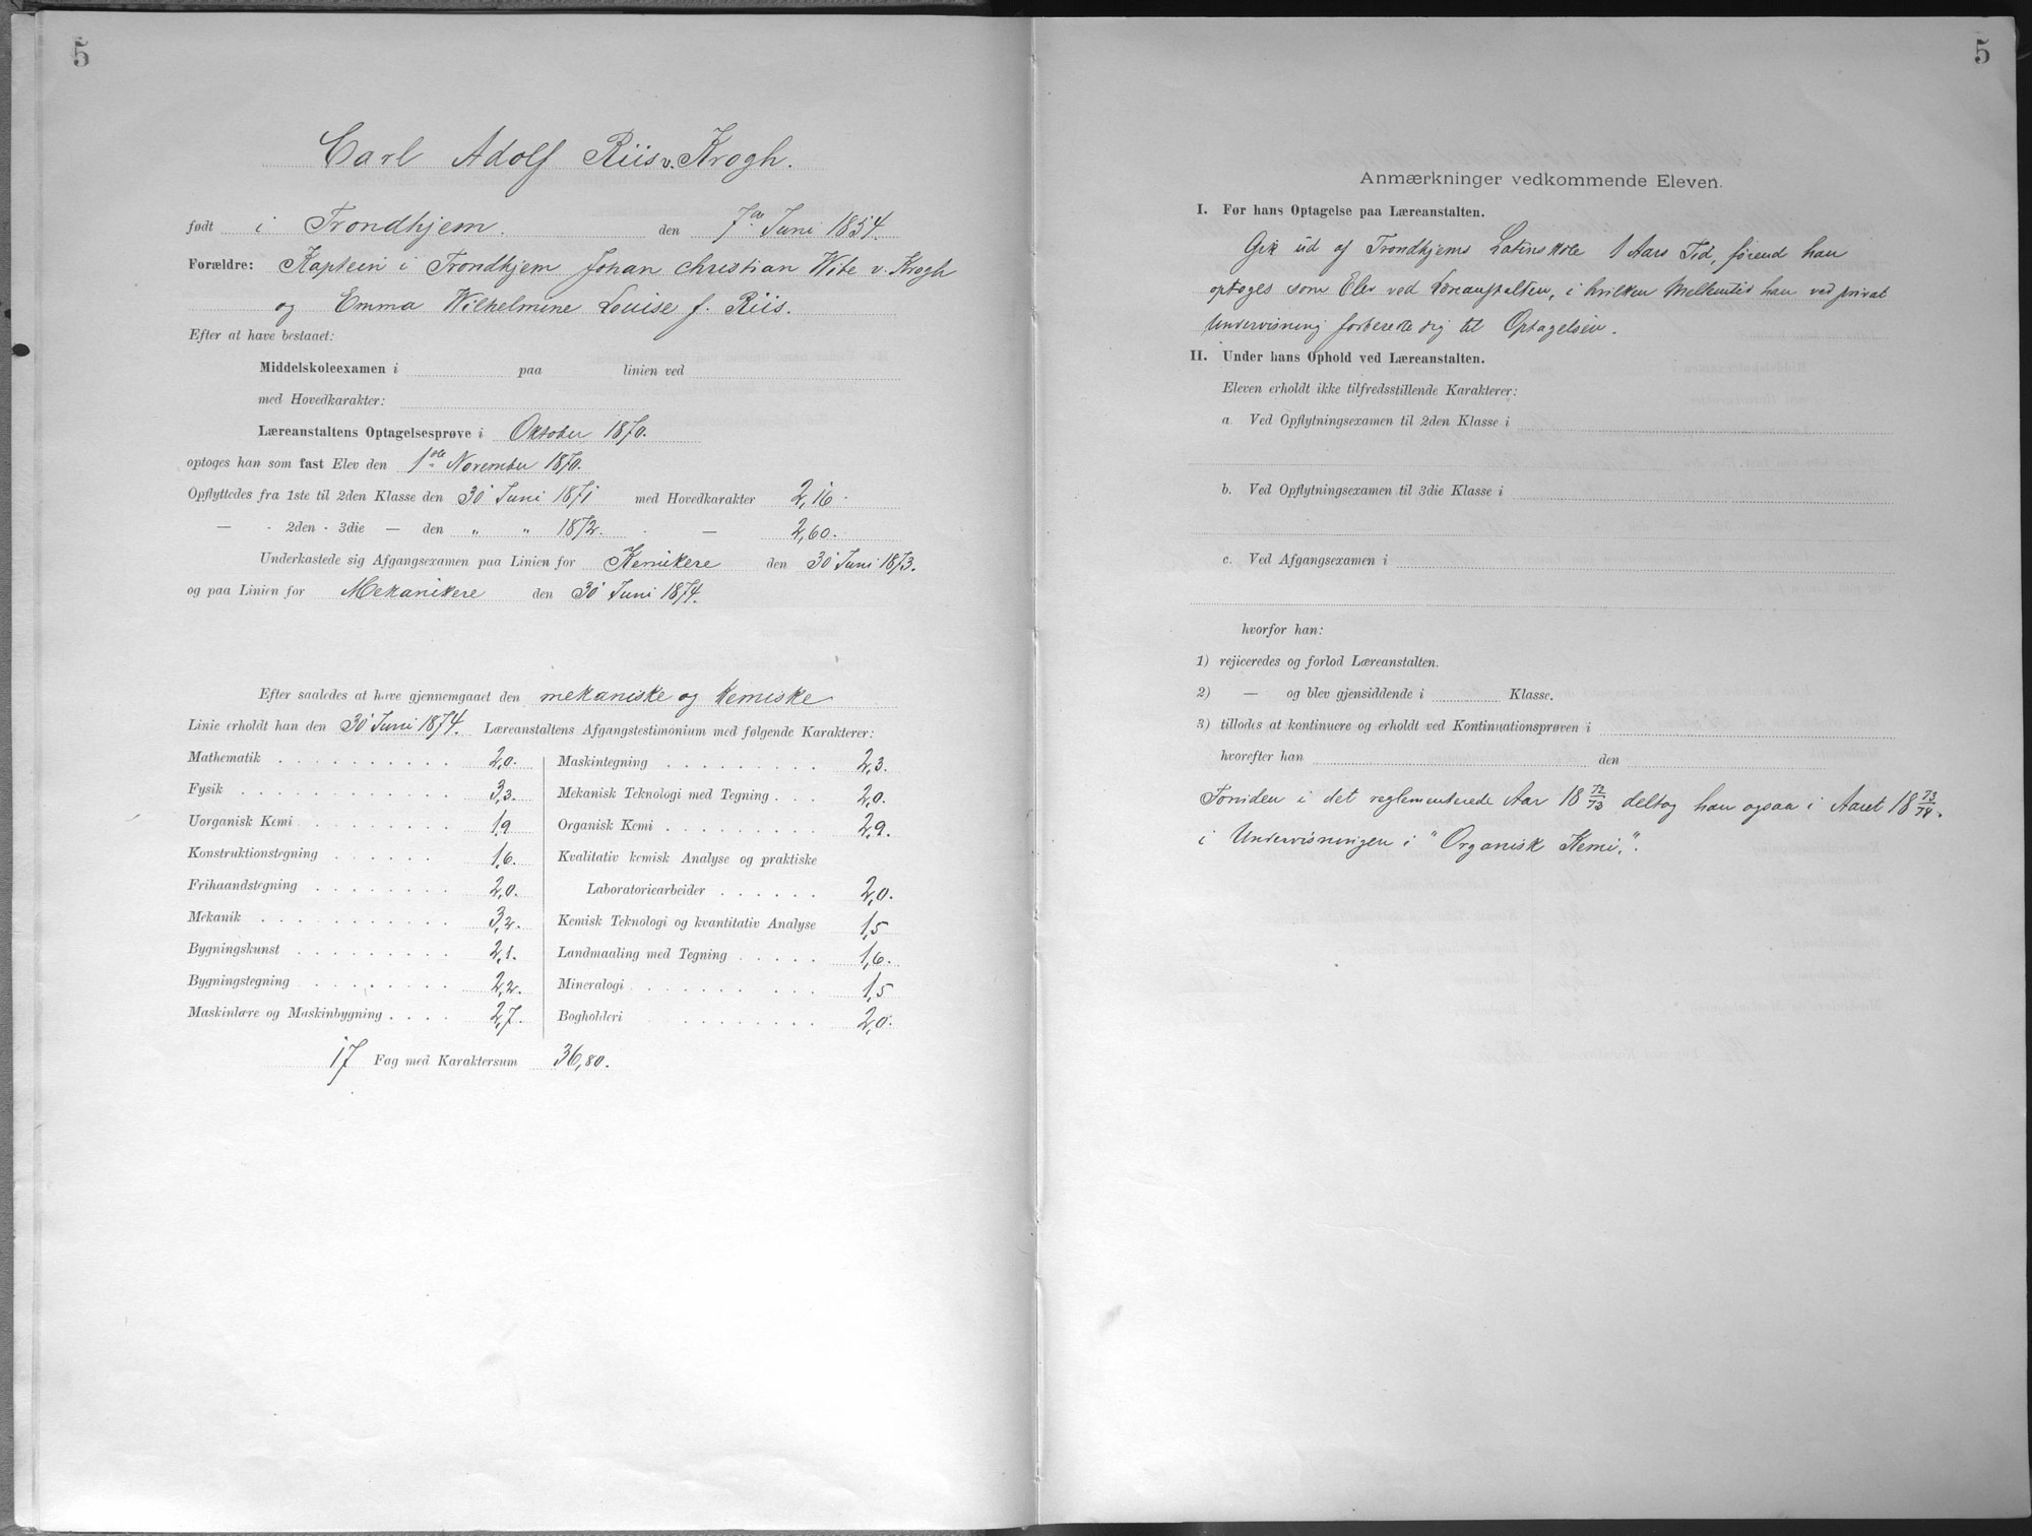 5
Carl Adolf Riis v. Krogh.
født i Trondhjem. den 7de Juni 1854.
Forældre: Kaptein i Trondhjem Johan Christian Wibe v. Krogh
og Emma Wilhelmine Louise f. Riis.
Efter at have bestaaet:
Middelskoleexamen i paa linien ved
med Hovedkarakter:
Læreanstaltens Optagelsesprøve i Oktober 1870.
optoges han som fast Elev den 1ste November 1870.
Opflyttedes fra 1ste til 2den Klasse den 30' Juni 1871 med Hovedkarakter 2,16.
— - 2den - 3die — den " " 1872. — 2,60.
Underkastede sig Afgangsexamen paa Linien for Kemikere den 30' Juni 1873.
og paa Linien for Mekanikere den 30' Juni 1874.
Efter saaledes at have gjennemgaaet den mekaniske og kemiske
Linie erholdt han den 30' Juni 1874. Læreanstaltens Afgangstestimonium med følgende Karakterer:
Mathematik 2,0.
Fysik 3,3.
Uorganisk Kemi 1,9
Konstruktionstegning 1,6.
Frihaandstegning 2,0.
Mekanik 3,2.
Bygningskunst 2,1.
Bygningstegning 2,2.
Maskinlære og Maskinbygning 2,7.
Maskintegning 2,3.
Mekanisk Teknologi med Tegning 2,0.
Organisk Kemi 2,9.
Kvalitativ kemisk Analyse og praktiske
Laboratoriearbeider 2,0.
Kemisk Teknologi og kvantitativ Analyse 1,5
Landmaaling med Tegning 1,6.
Mineralogi 1,5
Bogholderi 2,0.
17 Fag med Karaktersum 36,80.
5
Anmærkninger vedkommende Eleven.
I. Før hans Optagelse paa Læreanstalten.
Gik ud af Trondhjems Latinskole 1 Aars Tid, førend han
optoges som Elev ved Læreanstalten, i hvilken Mellemtid han ved privat
Undervisning forberedte sig til Optagelsen.
II. Under hans Ophold ved Læreanstalten.
Eleven erholdt ikke tilfredsstillende Karakterer:
a Ved Opflytningsexamen til 2den Klasse i
b. Ved Opflytningsexamen til 3die Klasse i
c. Ved Afgangsexamen i
hvorfor han:
1) rejiceredes og forlod Læreanstalten.
2) — og blev gjensiddende i Klasse.
3) tillodes at kontinuere og erholdt ved Kontinuationsprøven i
hvorefter han den
Foruden i det reglementerede Aar 18 72/73 deltog han ogsaa i Aaret 18 73/74.
i Undervisningen i "Organisk Kemi,".